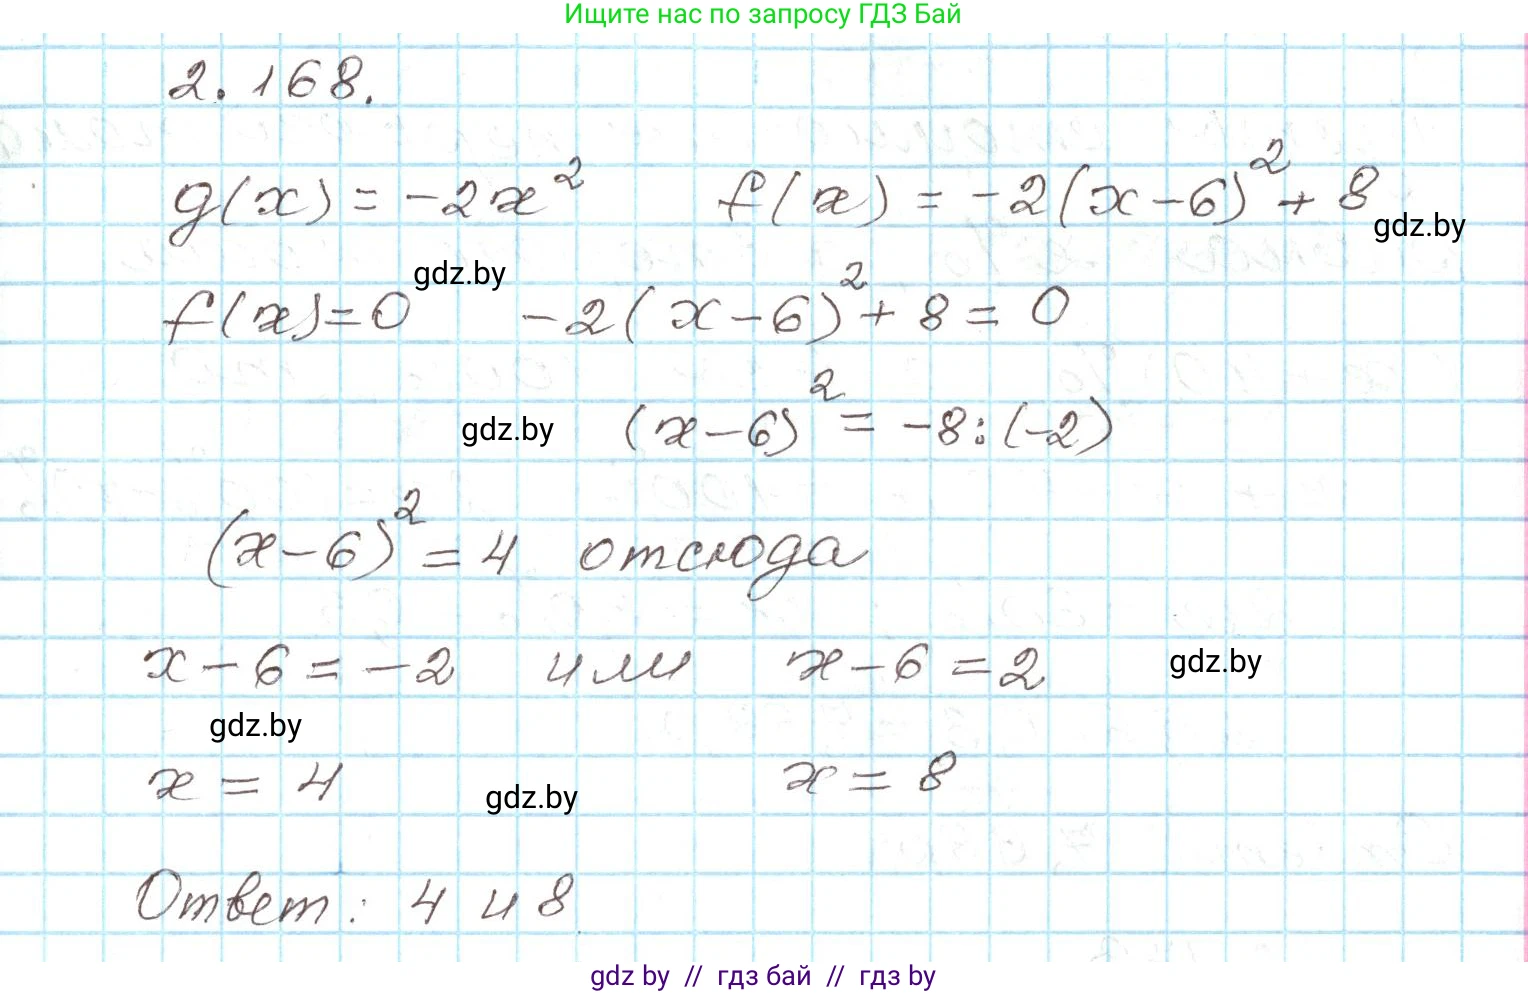 Ищите нас по запросу ГДЗ Бай
2.168.
g(x) = -2x² f(x) = -2(x-6)² + 8
gdz.by
gdz.by
f(x)=0 -2(x-6)² + 8 = 0
gdz.by (x-6)² = -8:(-2)
(x-6)² = 4 отсюда
x-6 = -2 или x-6 = 2 gdz.by
gdz.by
x = 4 gdz.by x = 8
Ответ: 4 и 8
gdz by // гдз бай // гдз by